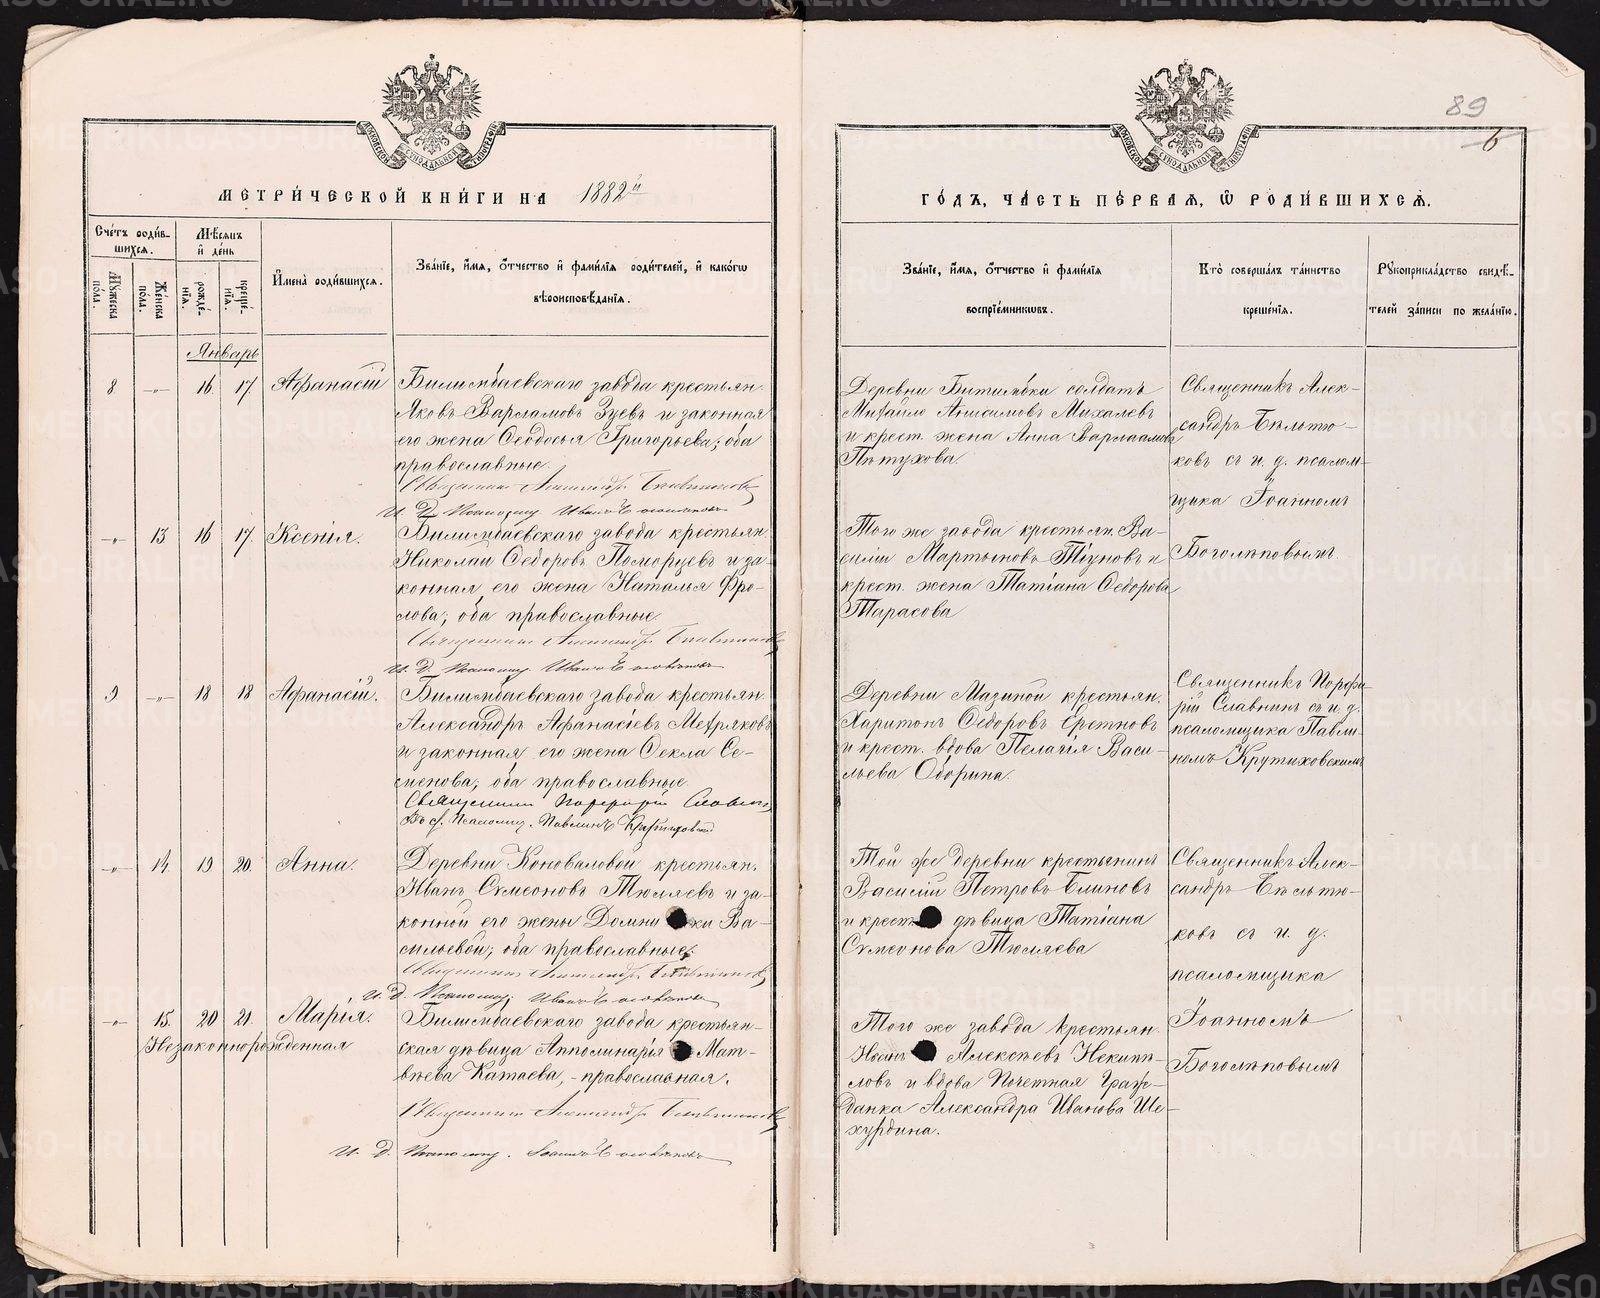 89
6
МЕТРИ́ЧЕСКОЙ КНИ́ГИ НА 1882й
ГО́ДЪ, ЧА́СТЬ ПЕ́РВАЯ, Ѽ РОДИ́ВШИХСЯ.
Сче́тъ роди́в-
шихся.
Мꙋжеска по́ла.
Же́нска по́ла.
Мѣ́сяцъ и де́нь
рожде́-
нїя.
креще́-
нїя.
Имена̀ роди́вшихся.
Зва́нїе, и́мя, о́тчество и фами́лїя роди́телей, и како́гѡ
вѣроисповѣ́данїя.
Зва́нїе, и́мя, о́тчество и фами́лїя
воспрїе́мникѡвъ.
Кто̀ соверша́лъ та́инство
креще́нїя.
Рꙋкоприкла́дство свидѣ́-
телей за́писи по жела́нїю.
Январь
8 -„- 16. 17. Афанасій
Билимбаевскаго завода крестьян.
Яковъ Варламовъ Зуевъ и законная
его жена Ѳеодосья Григорьева; оба
православные.
Священникъ Александръ Бѣльтюковъ
И. Д. Псаломщ. Иванъ Боголѣповъ
Деревни Битимки солдатъ
Михайло Анисимовъ Михалевъ
и крест. жена Анна Варлаамова
Пѣтухова.
Священникъ Алек-
сандръ Бѣльтю-
ковъ съ и. д. псалом-
щика Іоанномъ
Боголѣповымъ
-„- 13 16 17. Ксенія.
Билимбаевскаго завода крестьян.
Николай Ѳедоровъ Поморцевъ и за-
конная его жена Наталья Фро-
лова; оба православные.
Священникъ Александръ Бѣльтюковъ
И. Д. Псаломщ. Иванъ Боголѣповъ
Того же завода крестьян. Ва-
силій Мартыновъ Тіуновъ и
крест. жена Татіана Ѳедорова
Тарасова
9 -„- 18 18 Афанасій.
Билимбаевскаго завода крестьян.
Александръ Афанасіевъ Мехряковъ
и законная его жена Ѳекла Се-
менова; оба православные
Священникъ Порфирій Славнинъ
И. д. Псаломщ. Павлинъ Крутиховскій
Деревни Мазиной крестьян.
Харитонъ Ѳедоровъ Еретновъ
и крест. вдова Пелагія Васи-
льева Оборина.
Священникъ Порфи-
рій Славнинъ съ и. д.
псаломщика Павли-
номъ Крутиховскимъ
-„- 14. 19 20. Анна.
Деревни Коноваловой крестьян.
Иванъ Сѵмеоновъ Тюляевъ и за-
конной его жены Домни ки Ва-
сильевой; оба православные.
Священникъ Александръ Бѣльтюковъ
И. д. Псаломщ. Иванъ Боголѣповъ
Той же деревни крестьянинъ
Василій Петровъ Блиновъ
и крест. дѣвица Татіана
Сѵмеонова Тюляева
Священникъ Алек-
сандръ Бѣльтю-
ковъ съ и. д.
псаломщика
Іоанномъ
Боголѣповымъ
-„- 15. 20 21. Марія.
Незаконнорожденная
Билимбаевскаго завода крестьян-
ская дѣвица Апполинарія Мат-
вѣева Катаева, - православная.
Священникъ Александръ Бѣльтюковъ
И. Д. Псаломщ. Іоаннъ Боголѣповъ
Того же завода крестьян.
Алексѣевъ Некипѣ-
ловъ и вдова Почетная Граж-
данка Александра Иванова Ше-
хурдина.